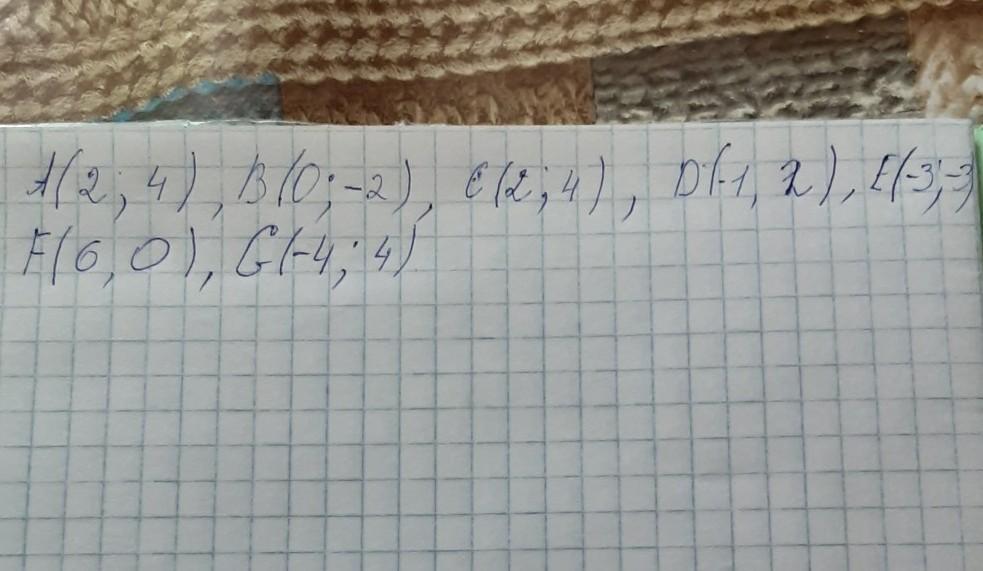 A(2; 4), B(0; -2), C(2; 4), D(-1, 2), E(-3; -3)
F(6, 0), G(-4; 4)